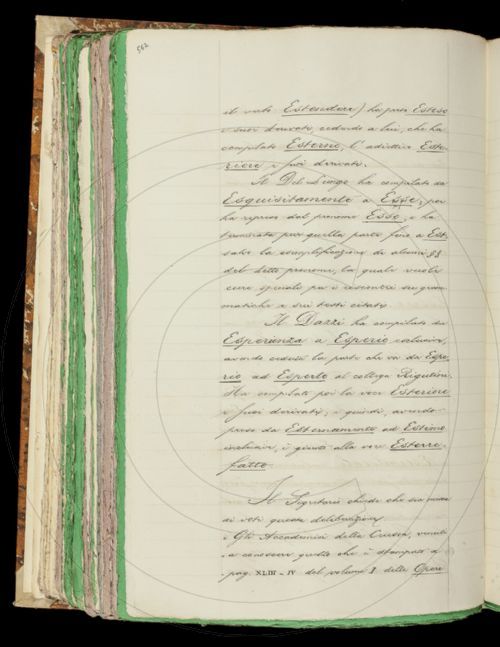 562
al verbo Estendere) ha però Esteso
e suoi derivati, cedendo a lui, che ha
compilato Esterno, l'addiettivo Este-
riore e suoi derivati.
Il Del Lungo ha compilato da
Esquisitamente a Esse, poi
ha ripreso dal pronome Esso, e ha
terminata pur quella parte fino a Est
salvo la compilazione di alcuni §§
del detto pronome, la quale vuole
cure speciali per i riscontri su gram-
matiche e sui testi citati.
Il Dazzi ha compilato da
Esperanza a Esperio inclusive,
avendo ceduta la parte che va da Espe-
rio ad Esperto al collega Rigutini.
Ha compilato poi la voce Esteriore
e suoi derivati; e quindi, avendo
preso da Esternamente ad Estimo
inclusive, è giunto alla voce Esterre-
fatto.
Il Segretario chiede che sia messa
ai voti questa deliberazione
"Gli Accademici della Crusca, venuti
"a conoscere quello che è stampato a
"pag. XLIII-IV del volume I delle Opere